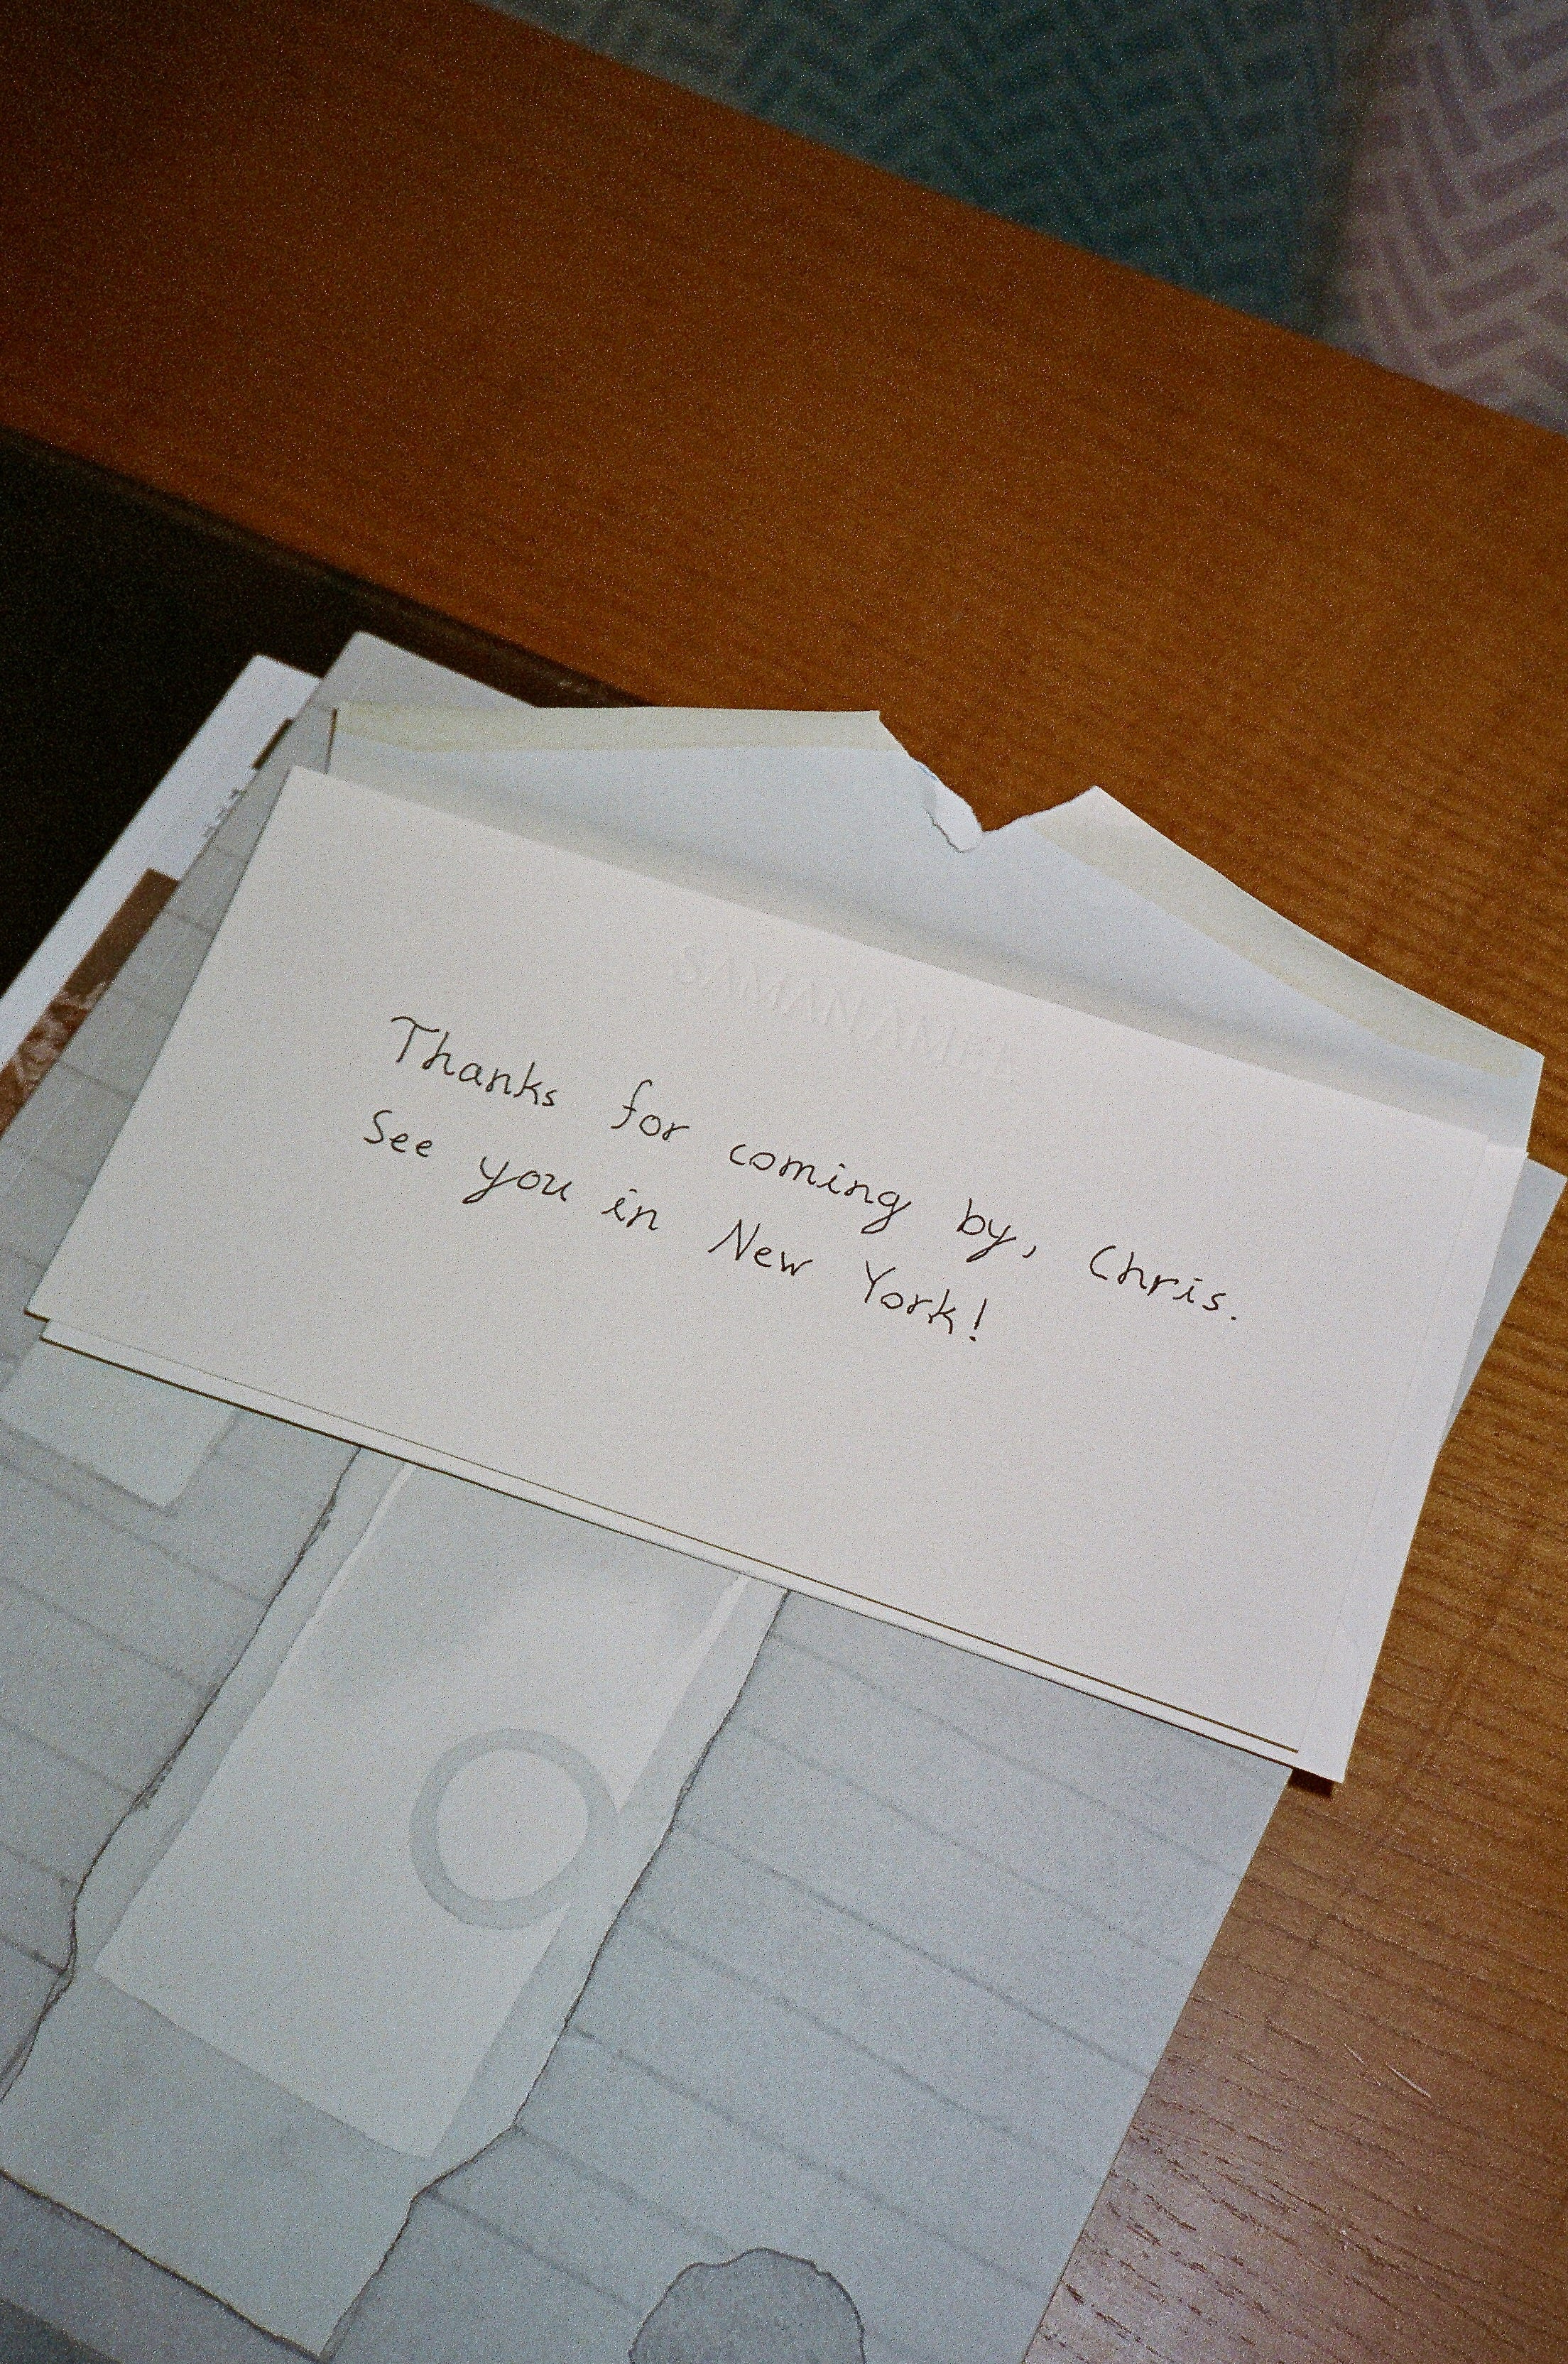 SAMAN AMEL
Thanks for coming by, Chris.
See you in New York!